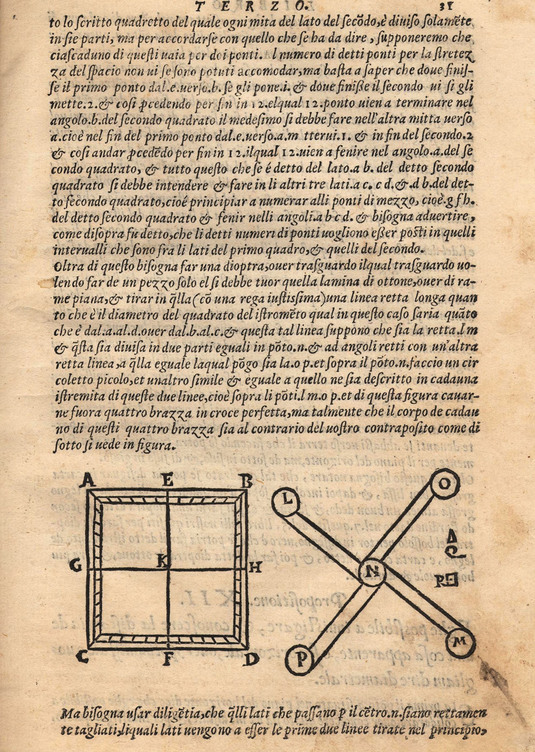 TERZO. 31
to lo scritto quadretto del quale ogni mita del lato del secõdo,è diuiso solamẽte
in sie parti, ma per accordarse con quello che se ha da dire, supponeremo che
ciascaduno di questi uaia per doi ponti. l numero di detti ponti per la stretez
za del spacio non ui se sono potuti accomodar,ma basta a saper che doue finis-
se il primo ponto dal.e.uerso.b.se gli pone.i. & doue finisse il secondo ui si gli
mette.2.& cosi pcedendo per fin in 12.elqual 12.ponto uien a terminare nel
angolo.b.del secondo quadrato il medesimo si debbe fare nell'altra mitta uerso
a.cioè nel fin del primo ponto dal.e.uerso.a.m tterui.1. & in fin del secondo.2
& cosi andar pcedẽdo per fin in 12.ilqual 12.uien a fenire nel angolo.a.del se
condo quadrato, & tutto questo che se é detto del lato.a b. del detto secondo
quadrato si debbe intendere & fare in li altri tre lati.a c. c d.& d b.del det-
to secondo quadrato,cioé principiar a numerar alli ponti di mezzo, cioè.g f h.
del detto secondo quadrato & fenir nelli angoli.a b c d. & bisogna aduertire,
come disopra fu detto,che li detti numeri di ponti uogliono esser posti in quelli
interualli che sono fra li lati del primo quadro,& quelli del secondo.
Oltra di questo bisogna far una dioptra,ouer trasguardo ilqual trasguardo uo-
lendo far de un pezzo solo el si debbe tuor quella lamina di ottone,ouer di ra-
me piana,& tirar in q̃lla(cõ una rega iustissima)una linea retta longa quan
to che è il diametro del quadrato del istrom̃eto qual in questo caso saria quãto
che è dal.a.al.d.ouer dal.b.al.c.& questa tal linea suppono che sia la retta.l m
& q̃sta sia diuisa in due parti eguali in põto.n.& ad angoli retti con un'altra
retta linea,a q̃lla eguale laqual põgo sia la.o p.et sopra il põto.n.faccio un cir
coletto picolo,et unaltro simile & eguale a quello ne sia descritto in cadauna
istremita di queste due linee,cioè sopra li põti.l m.o p.et di questa figura cauar-
ne fuora quattro brazza in croce perfetta,ma talmente che il corpo de cadau
no di questi quattro brazza sia al contrario del uostro contraposito come di
sotto si uede in figura.
A E B
G K H
C F D
L O
N
P M
Ma bisogna usar diligẽtia,che q̃lli lati che passano p il cẽtro.n.siano rettamen
te tagliati,liquali lati uengono a esser le prime due linee tirate nel principio,